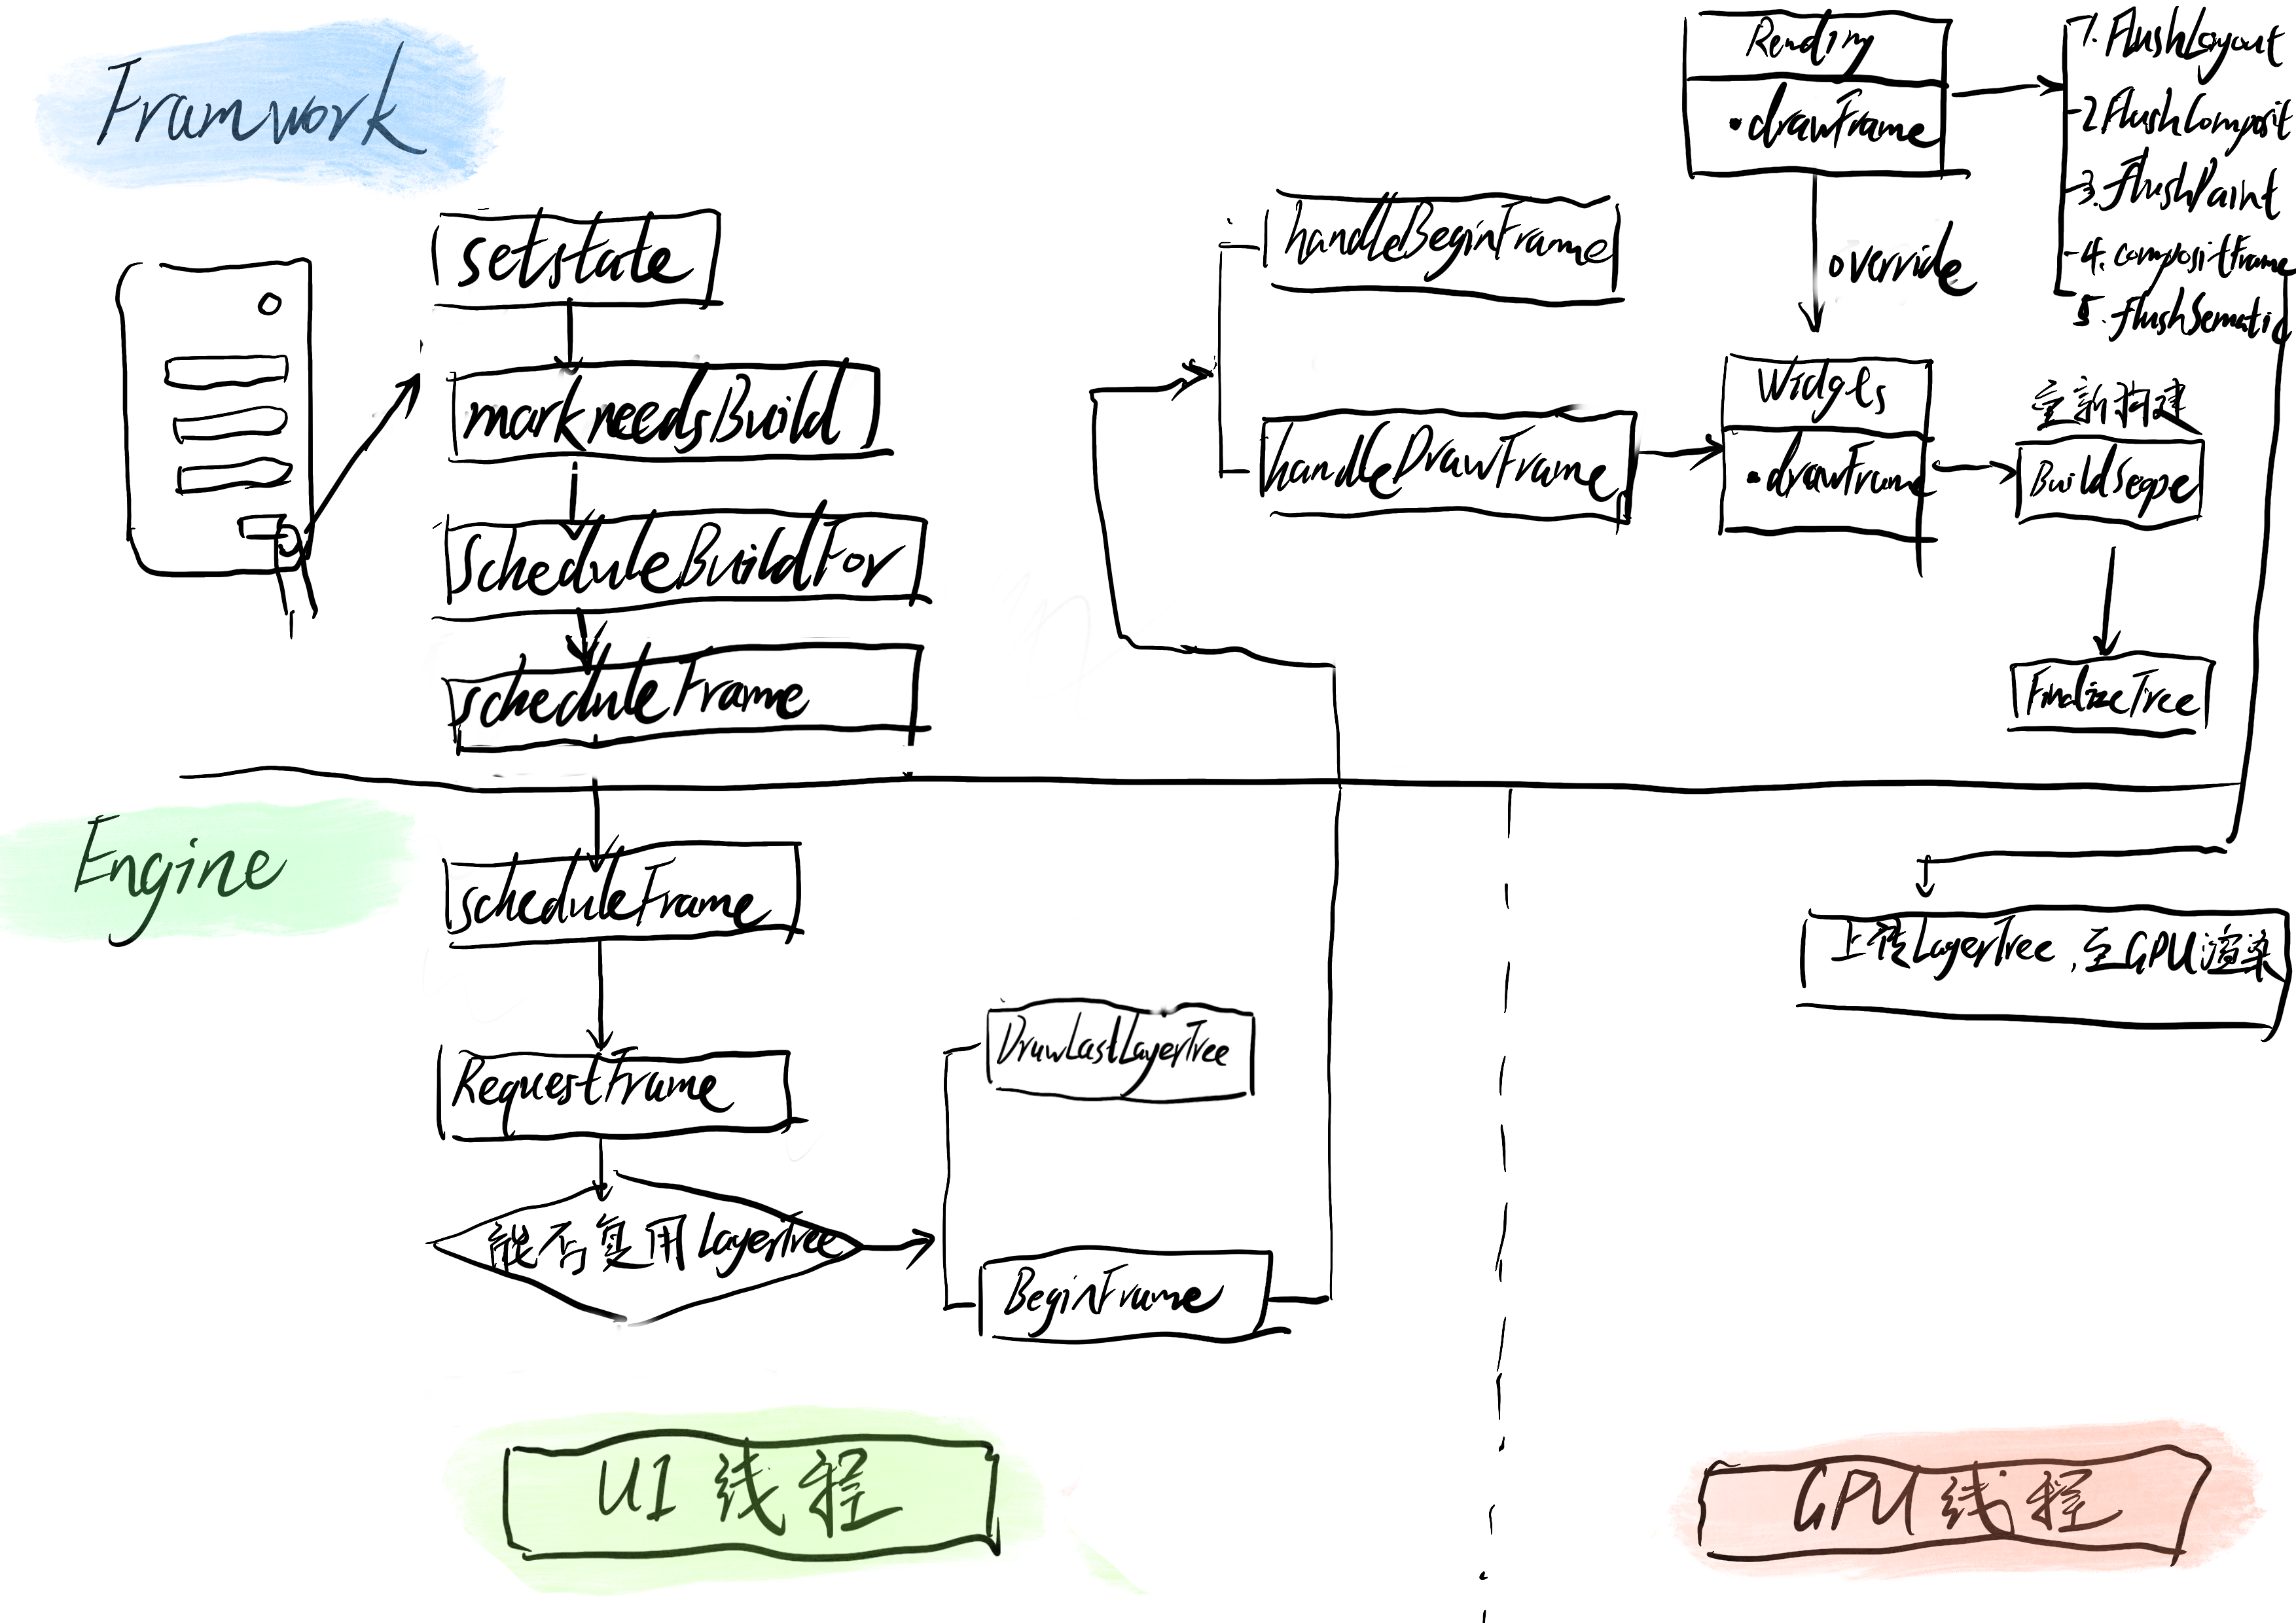 Framwork
setstate
markneedsBuild
scheduleBuildFor
scheduleFrame
handleBeginFrame
handleDrawFrame
Rendiry
•drawFrame
override
Widgets
•drawFrame
1. FlushLayout
2 FlushComposit
3. FlushPaint
4. compositFrame
5. flushSematic
重新构建
BuildScope
FinalizeTree
Engine
scheduleFrame
RequestFrame
能否复用 LayerTree
DrawLastLayerTree
BeginFrame
上传LayerTree, 至GPU渲染
UI 线程
GPU 线程